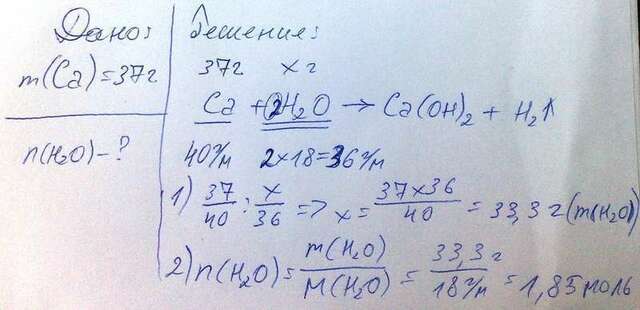 Дано:
m(Ca)=37г
n(H₂O)-?
Решение:
37г x г
Ca + 2H₂O → Ca(OH)₂ + H₂↑
40г/м 2×18=36г/м
1) 37/40 : x/36 => x = 37×36/40 = 33,3 г (m(H₂O))
2) n(H₂O) = m(H₂O)/M(H₂O) = 33,3 г/18г/м = 1,85 моль